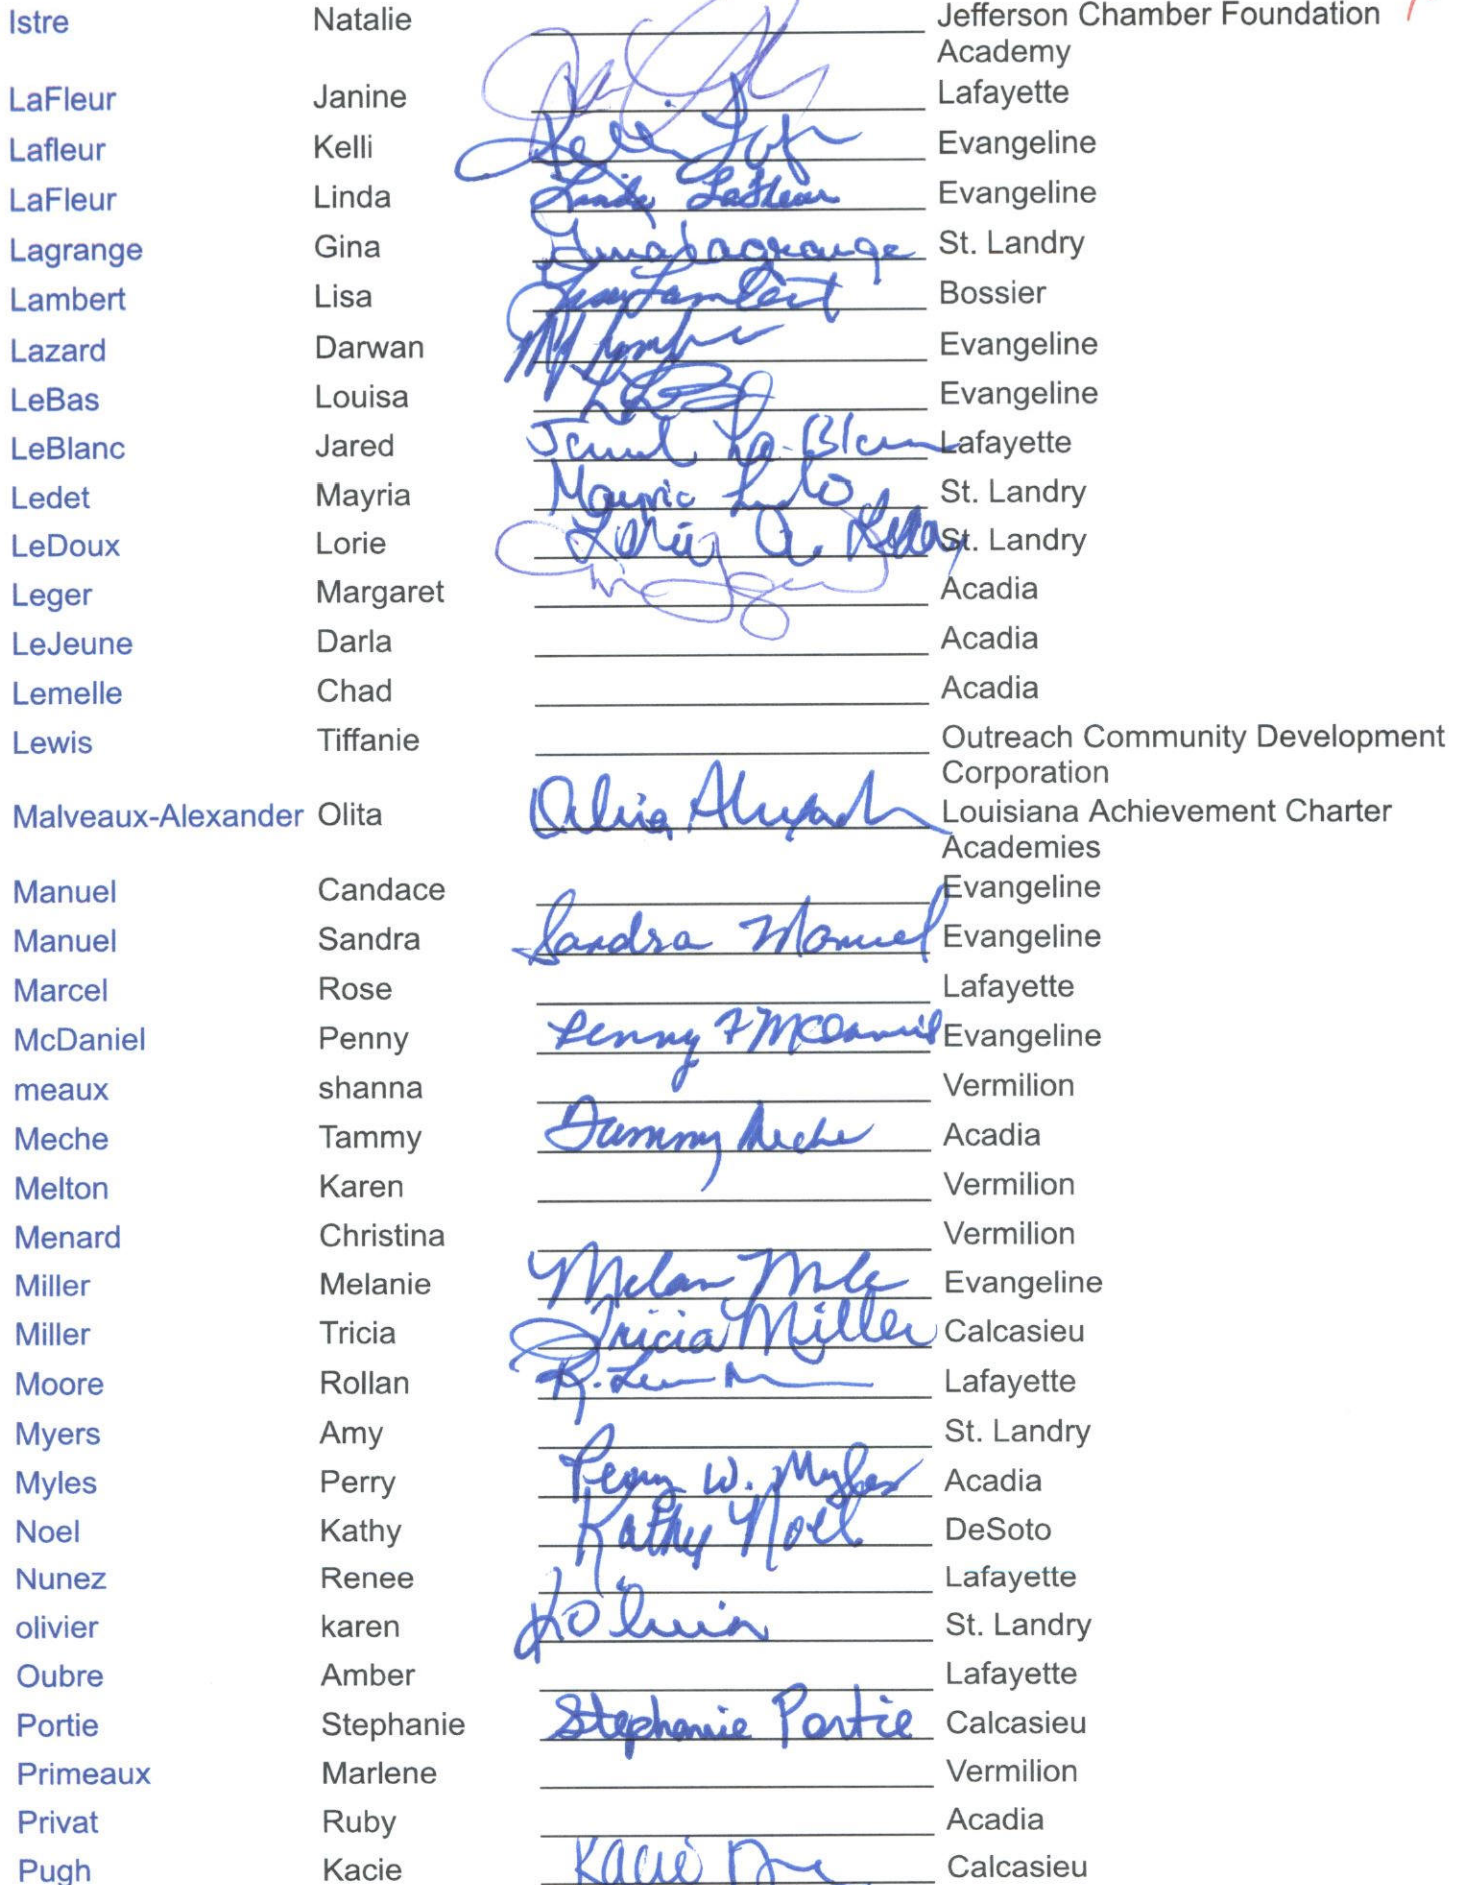 Istre Natalie Jefferson Chamber Foundation
Academy
LaFleur Janine Lafayette
Lafleur Kelli Kelli Evangeline
LaFleur Linda Linda LaFleur Evangeline
Lagrange Gina Gina Lagrange St. Landry
Lambert Lisa Lisa Lambert Bossier
Lazard Darwan Evangeline
LeBas Louisa Evangeline
LeBlanc Jared Jared Le-Blanc Lafayette
Ledet Mayria Mayria St. Landry
LeDoux Lorie Lorie A. St. Landry
Leger Margaret Acadia
LeJeune Darla Acadia
Lemelle Chad Acadia
Lewis Tiffanie Outreach Community Development
Corporation
Malveaux-Alexander Olita Louisiana Achievement Charter
Academies
Manuel Candace Evangeline
Manuel Sandra Sandra Manuel Evangeline
Marcel Rose Lafayette
McDaniel Penny Penny F McDaniel Evangeline
meaux shanna Vermilion
Meche Tammy Tammy Meche Acadia
Melton Karen Vermilion
Menard Christina Vermilion
Miller Melanie Evangeline
Miller Tricia Tricia Miller Calcasieu
Moore Rollan Lafayette
Myers Amy St. Landry
Myles Perry Perry W. Myles Acadia
Noel Kathy Kathy Noel DeSoto
Nunez Renee Lafayette
olivier karen K Olivier St. Landry
Oubre Amber Lafayette
Portie Stephanie Stephanie Portie Calcasieu
Primeaux Marlene Vermilion
Privat Ruby Acadia
Pugh Kacie Kacie Calcasieu